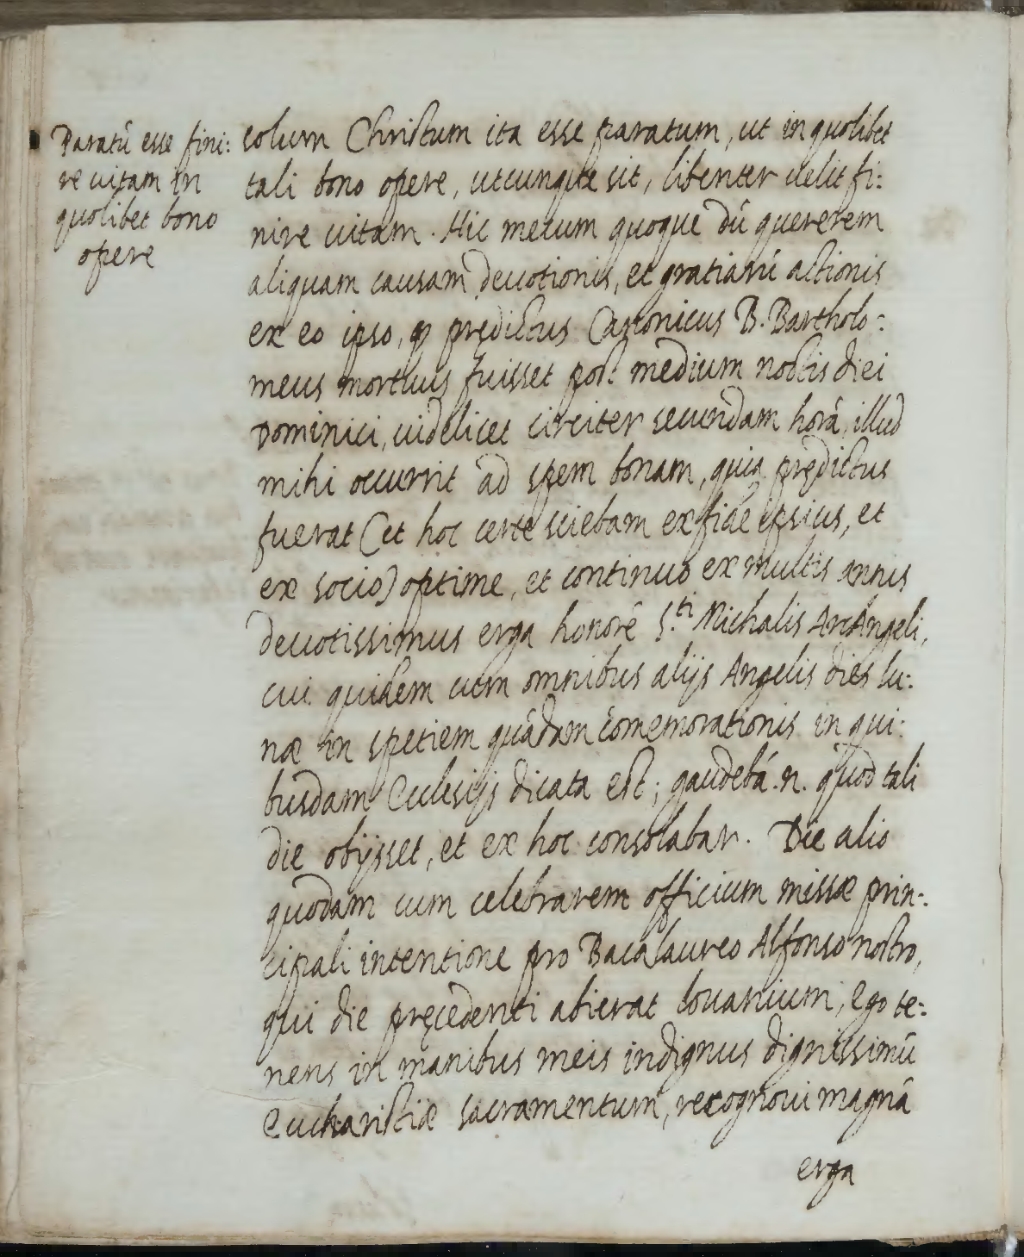 Paratū esse fini:
re vitam in
quolibet bono
opere
solum Christum ita esse paratum, ut in quolibet
tali bono opere, utcunque sit, libenter velit fi:
nire vitam. Hic mecum quoque dū quererem
aliquam causam devotionis, et gratiarū actionis
ex eo ipso, qꝫ prędictus Canonicus B. Bartholo:
meus mortuus fuisset post medium noctis diei
Dominici, videlicet circiter secundam horā, illud
mihi occurrit ad spem bonam, quia prędictus
fuerat (et hoc certe sciebam ex fide ipsius, et
ex socio) optime, et continuo ex multis annis
devotissimus erga honorē S.ti Michalis ArchAngeli,
cui quidem cum omnibus alijs Angelis dies lu:
næ in spetiem quādam cōmemorationis in qui:
busdam Eclesijs dicata est; gaudebā .n. quod tali
die obijsset, et ex hoc consolabar. Die alio
quodam cum celebrarem officium missæ prin:
cipali intentione pro Bacalaureo Alfonso nostro,
qui die pręcedenti abierat Lovanium, Ego te:
nens in manibus meis indignus dignissimū
Eucharistiæ sacramentum, recognovi magnā
erga